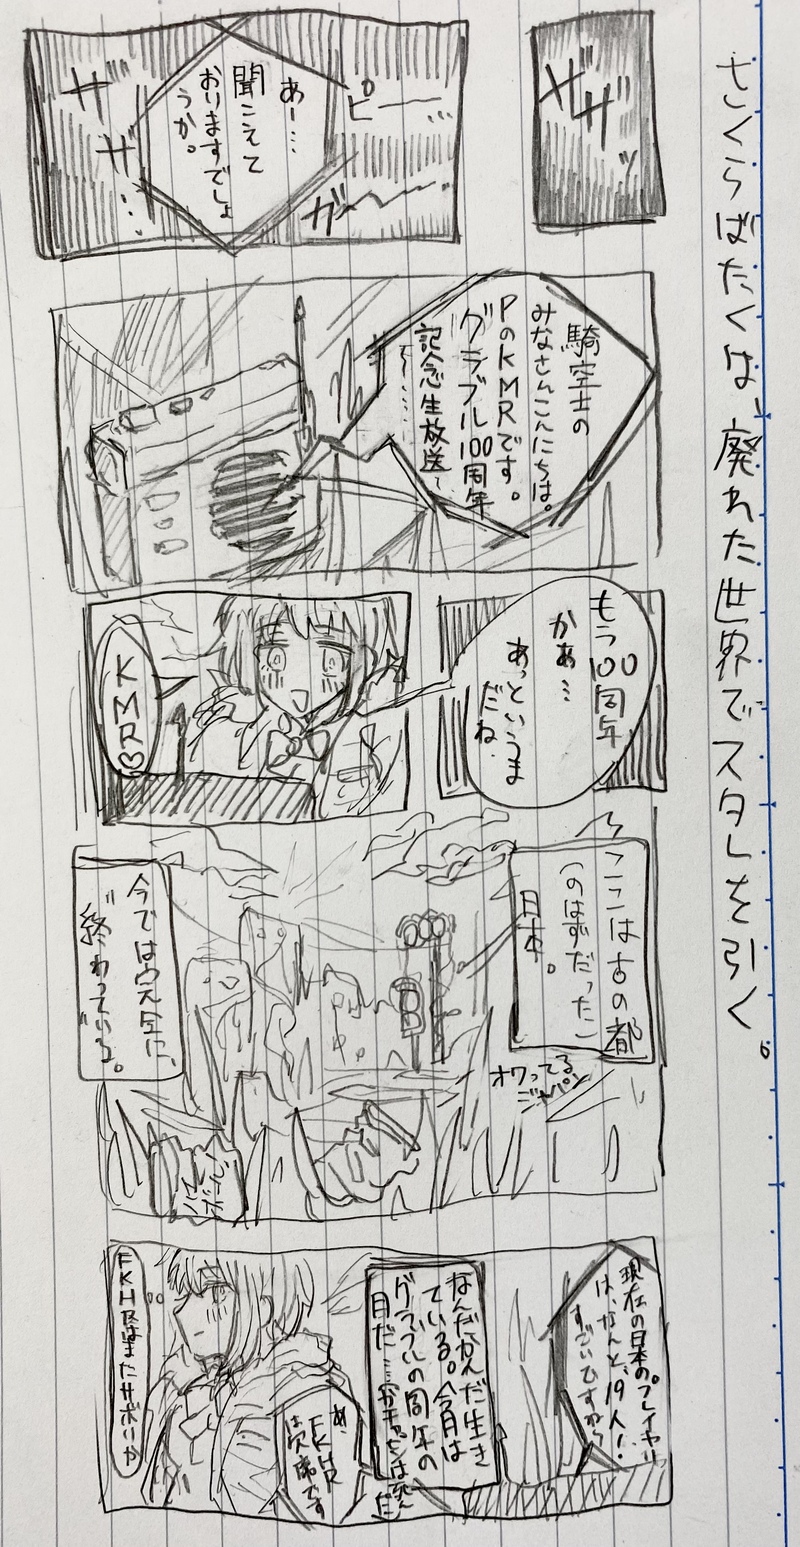 さくらばたくは、廃れた世界でスタレを引く
ザザッ
ピー
ガー
あー…
聞こえて
おりますでしょ
うか。
ザ
ザ…
騎空士の
みなさんこんにちは。
PのKMRです。
グラブル100周年
記念生放送〜
もう100周年
かぁ…
あっというま
だね
KMR♡
ここは古の都
(のはずだった)
日本。
オワってる
ジャパン
今では完全に、
"終わっている。"
現在の日本のプレイヤー
は、なんと、19人!
すごいですね〜
なんだかんだ生き
ている。今月は
グラブルの周年の
月だ…
あ、
FKHR
は欠席です
FKHRはまたサボりか